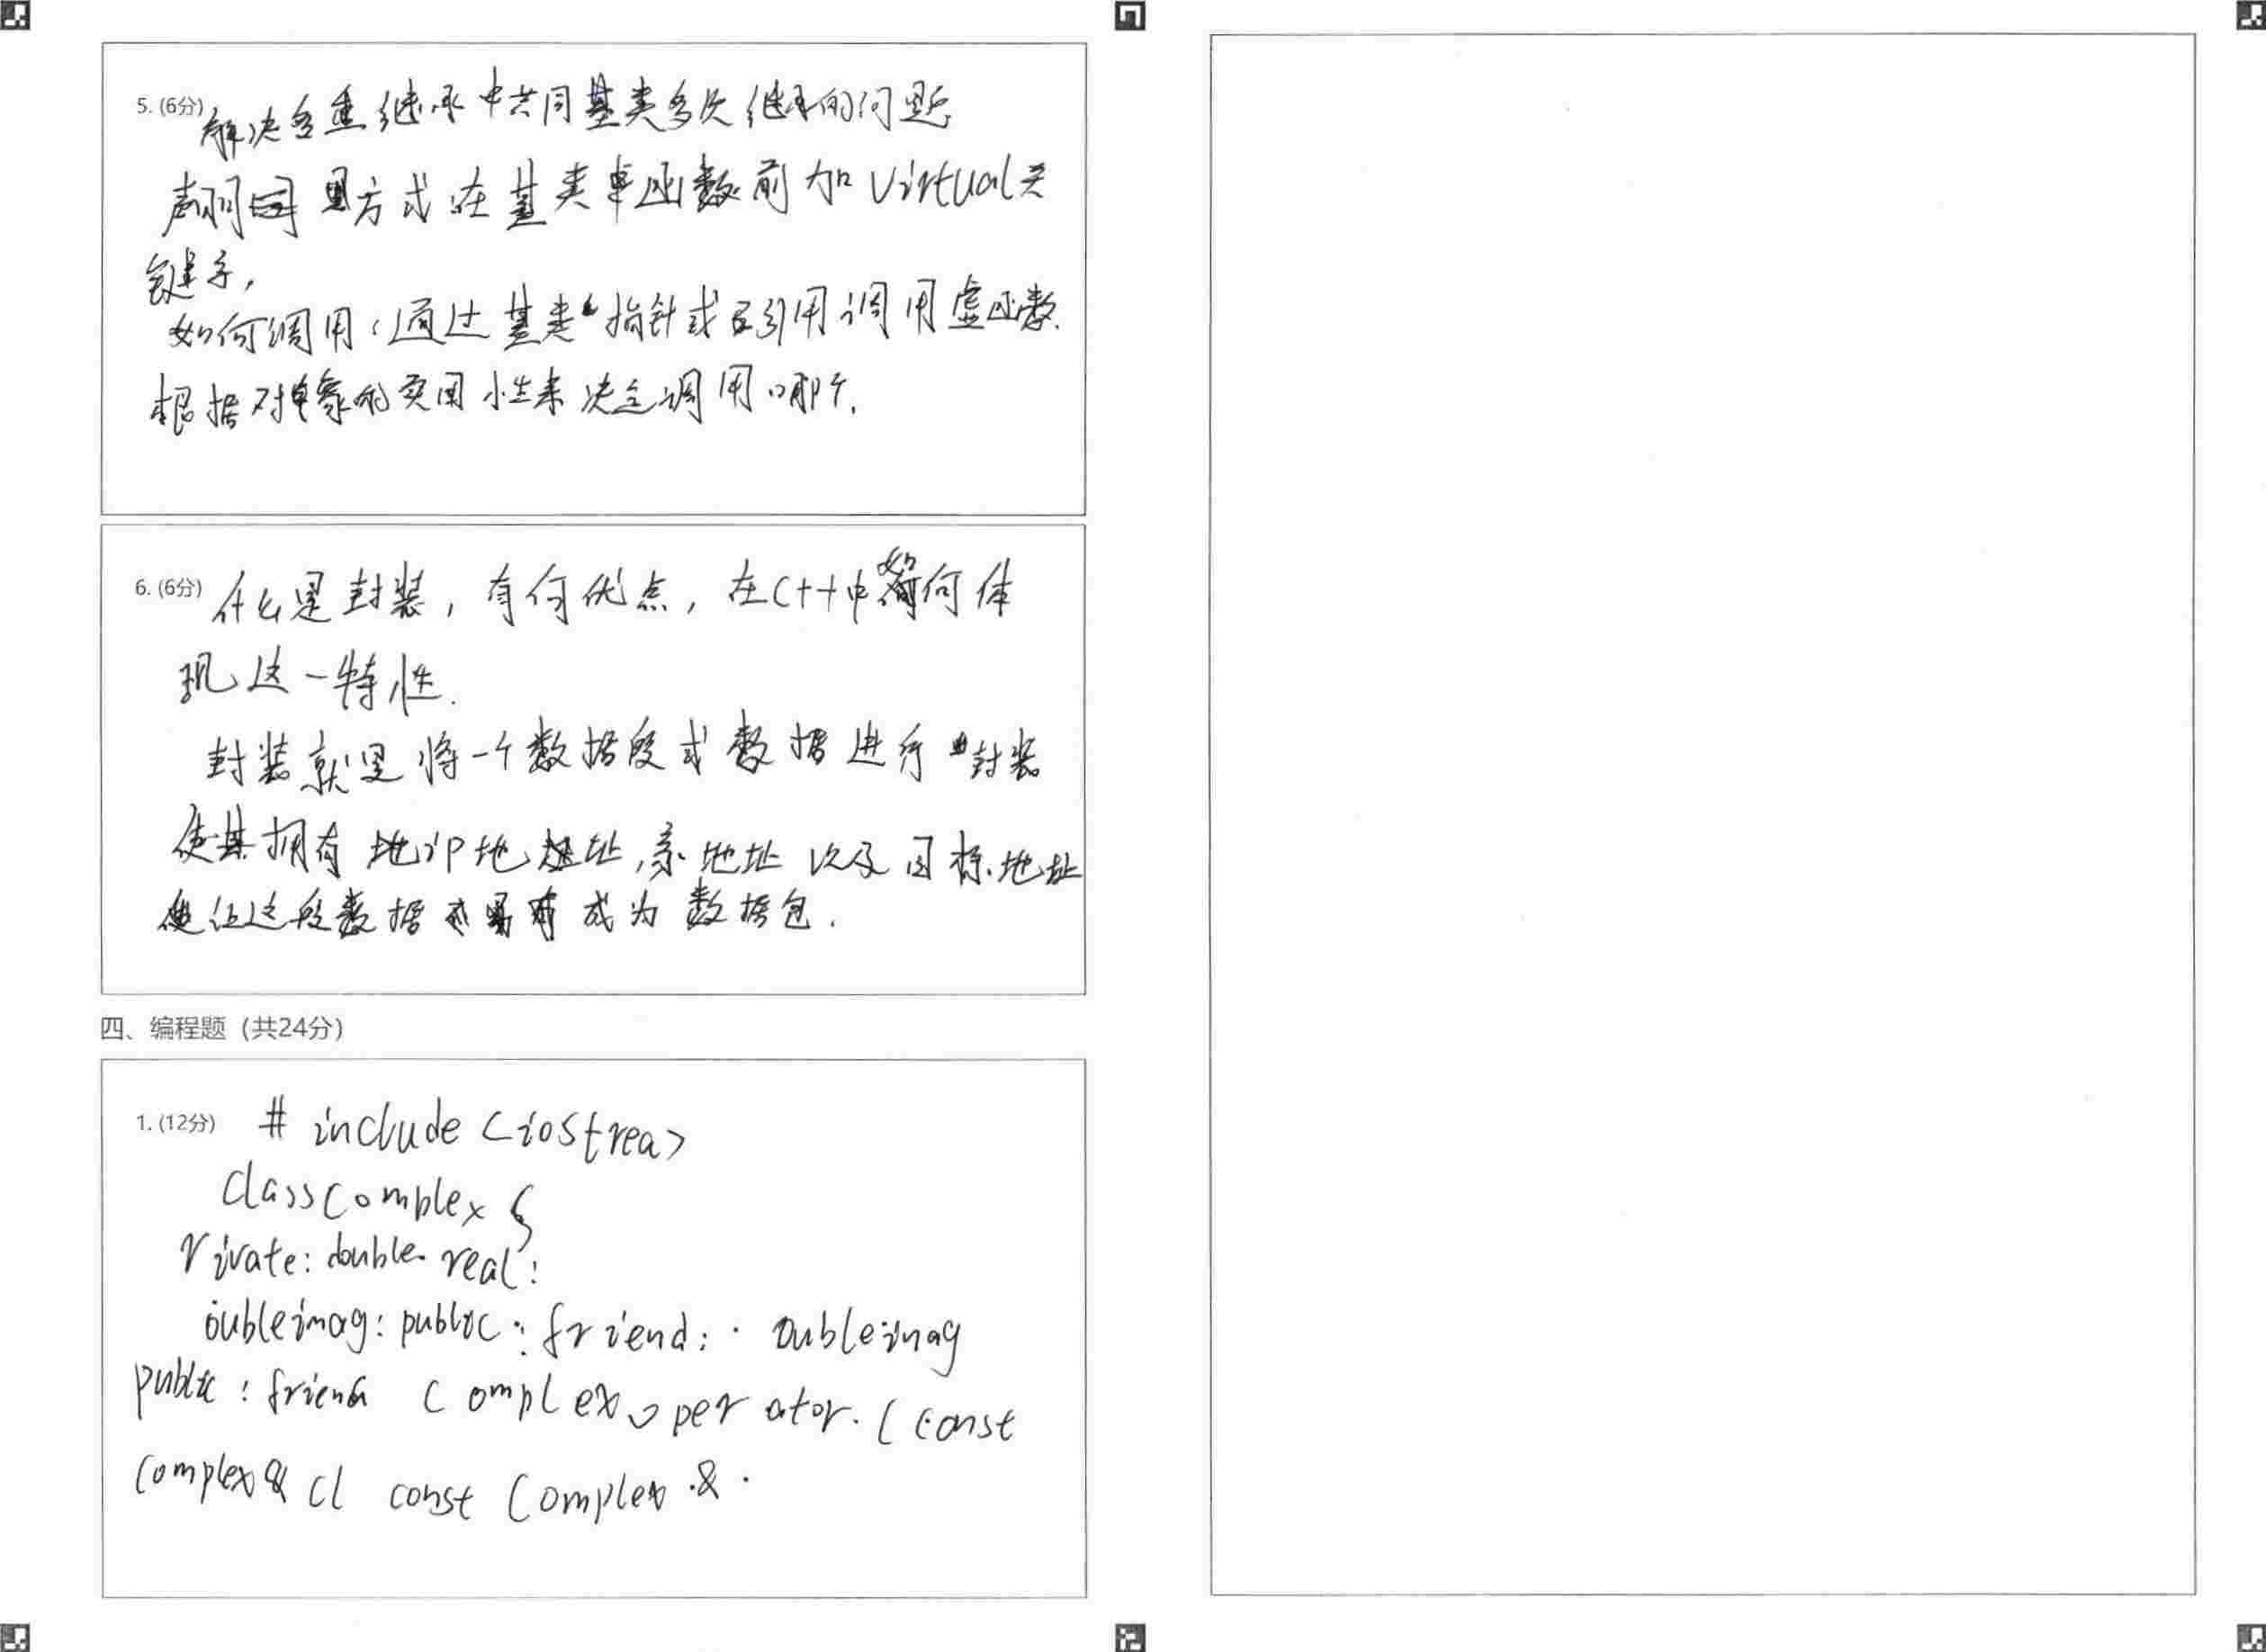 5. (6分) 解决多重继承中共同基类多次继承的问题
声明 方式在基类 函数前加 Virtual关
键字,
如何调用:通过基类 指针或引用调用虚函数.
根据对象的实 性来决定调用哪个.
6. (6分) 什么是封装, 有何优点, 在C++中如何体
现这一特性.
封装就是将一个数据段或数据进行 封装
使其拥有 地ip地址, 地址 以及目标地址
让这段数据 成为数据包.
四、编程题 (共24分)
1. (12分) # include <iostrea>
class Complex {
rivate: double real;
oubleimag: public: friend: oubleimag
public: friend Complex operator. (const
Complex& cl const Complex &